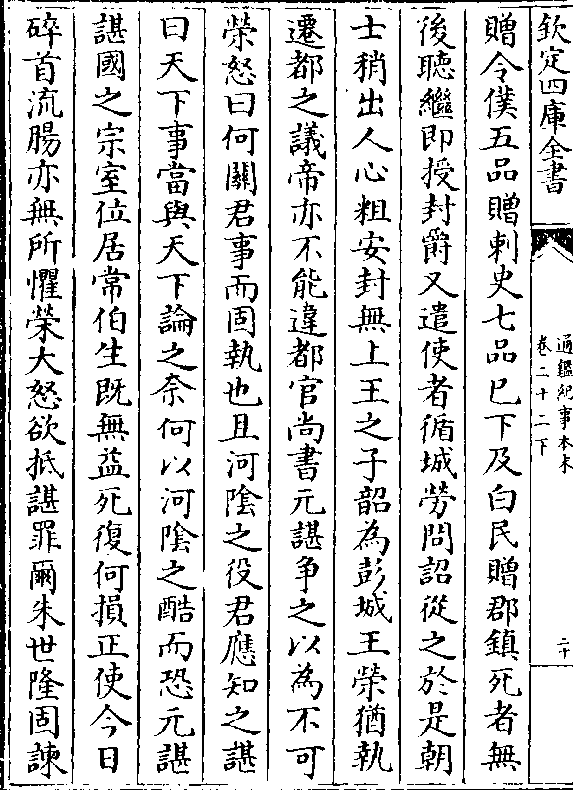 欽定四庫全書
通鑑紀事本末
卷二十二下
二十
贈令僕五品贈刺史七品已下及白民贈郡鎮死者無
後聽繼即授封爵又遣使者循城勞問詔從之於是朝
士稍出人心粗安封無上王之子韶為彭城王榮猶執
遷都之議帝亦不能違都官尚書元諶争之以為不可
榮怒曰何關君事而固執也且河陰之役君應知之諶
曰天下事當與天下論之奈何以河陰之酷而恐元諶
諶國之宗室位居常伯生既無益死復何損正使今日
碎首流腸亦無所懼榮大怒欲抵諶罪爾朱世隆固諫